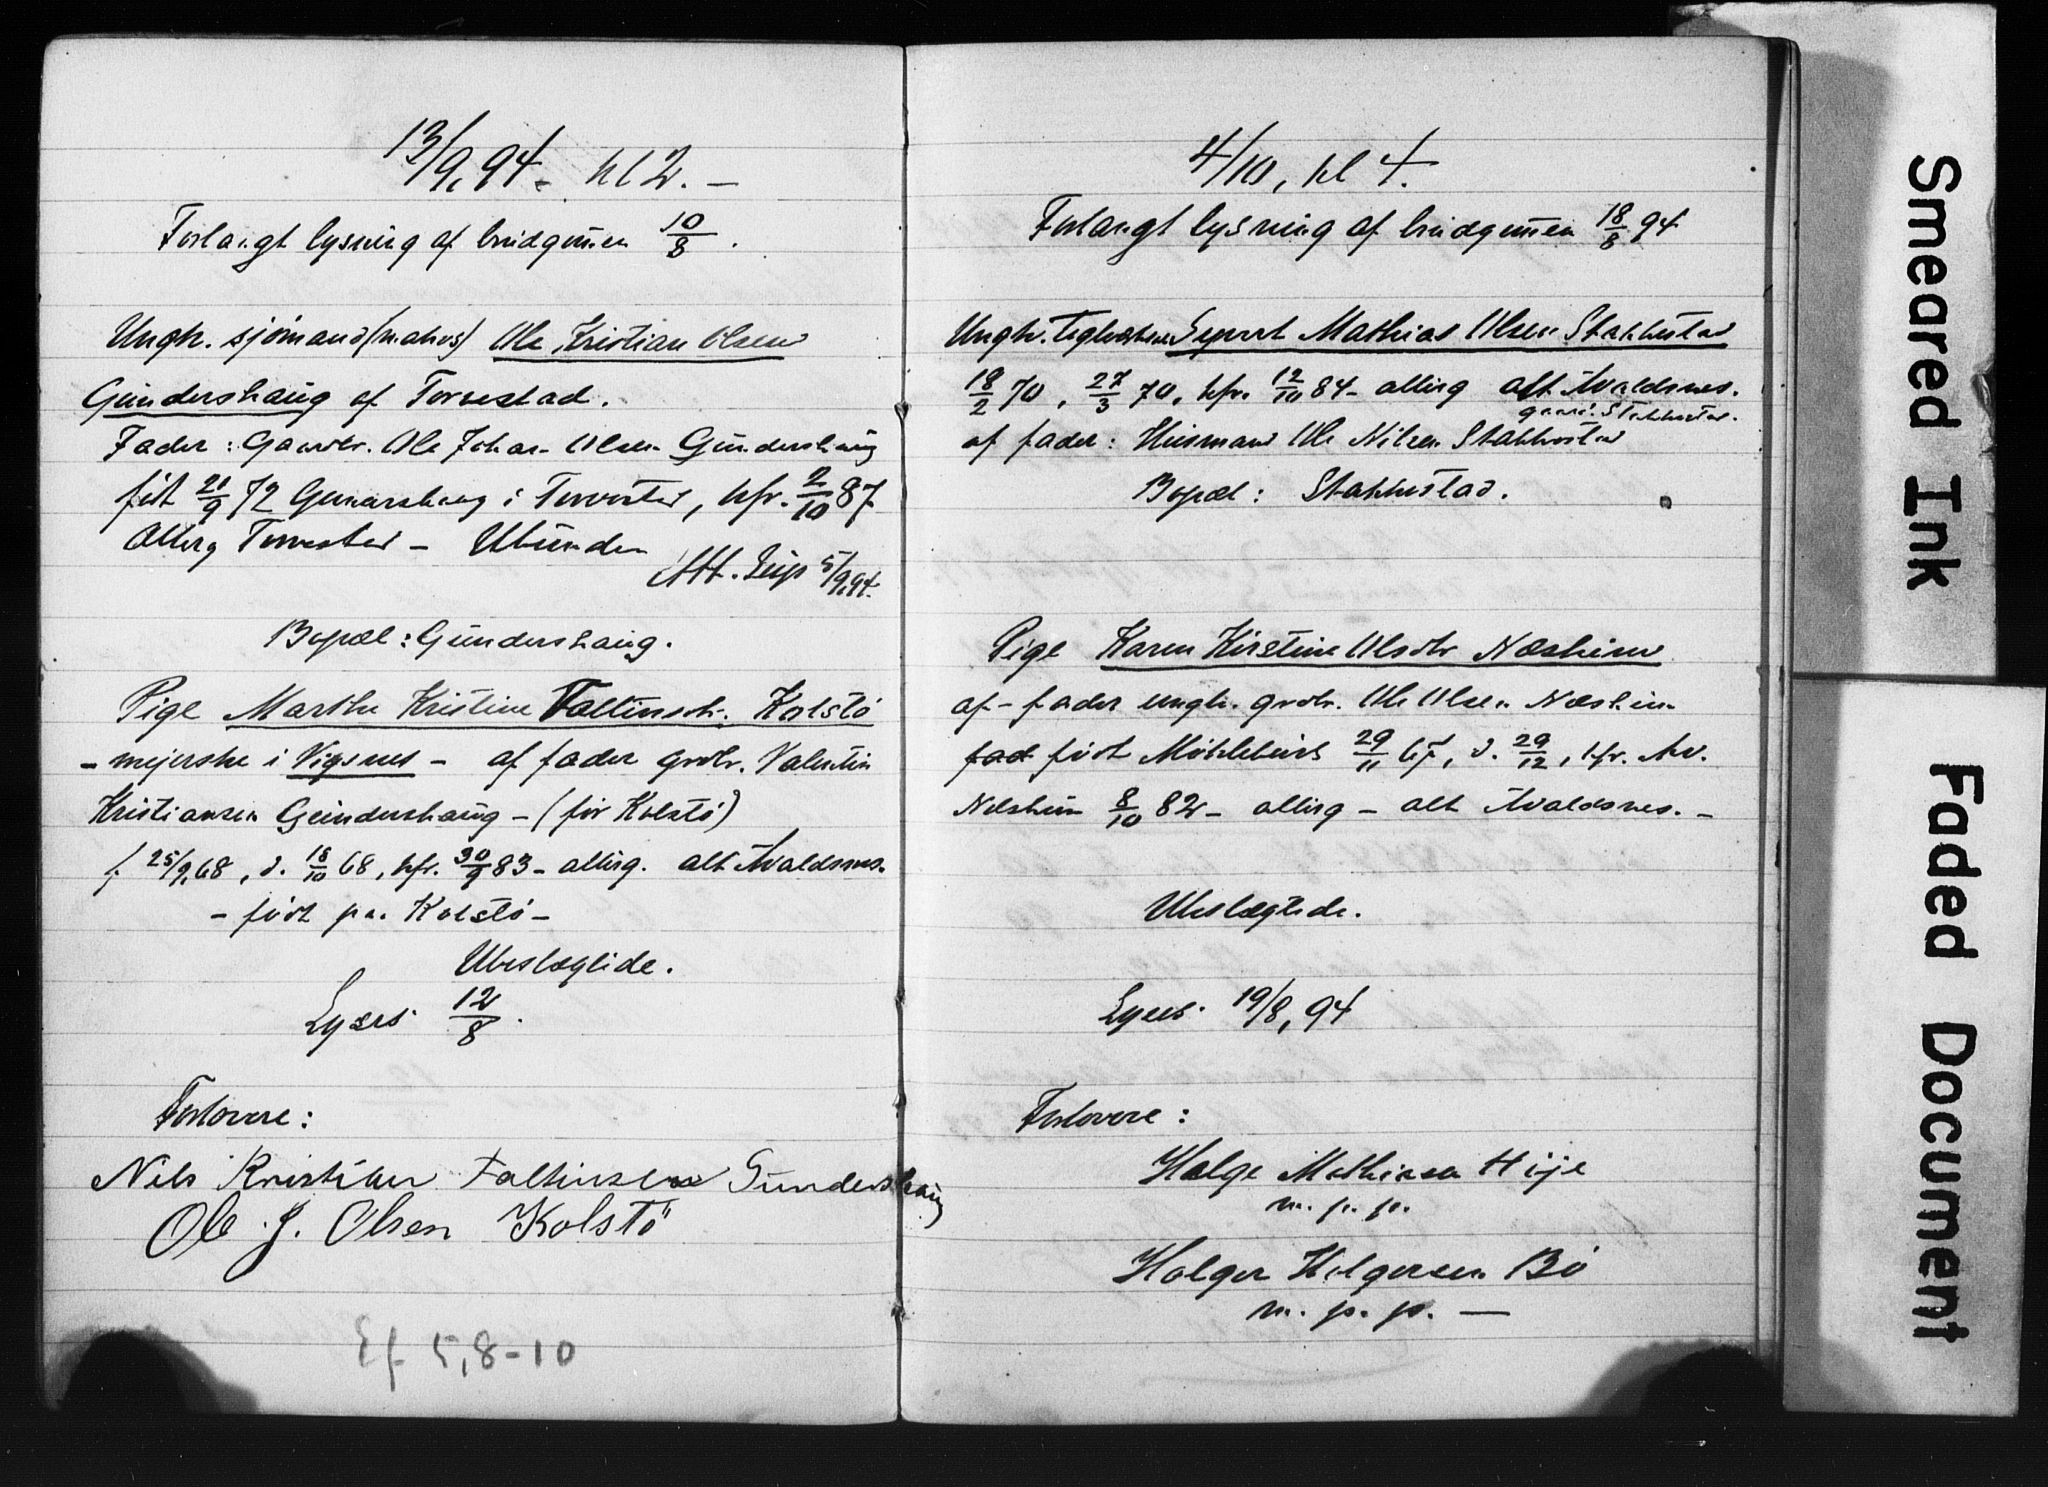 13/9, 94. kl 2. –
Forlangt lysning af brudgummen 10/8.
Ungk. sjömand (matros) Ole Kristian Olsen
Gundershaug af Torvestad.
Fader: Gaardbr. Ole Johan Olsen Gundershaug
föt 21/9 72 Gunnarshaug i Torvestad, kfr. 2/10 87
Torvestad – Ubunden
Att. 5/9, 94.
Bopæl: Gundershaug.
Pige Marthe Kristine Faltinsdt. Kolstö
– mejerske i Vigsnes – af fader grdbr. Valentin
Kristiansen Gundershaug – (för Kolstö)
f. 25/9, 68, d. 18/10 68, kfr. 30/9 83 – alt Avaldsnes.
– födt paa Kolstö –
Ubeslægtede.
Lyses 12/8.
Forlovere:
Nils Kristian Faltinsen Gundershaug
Ole J. Olsen Kolstö
Ef 5, 8-10
4/10, kl 4.
Forlangt lysning af brudgummen 18/8 94
Ungk. Sivert Mathias Olsen Stakkestad
18/2 70, 27/3 70, kfr. 12/10 84 – alt Avaldsnes.
Stakkestad.
af fader: Husmand Ole Nilsen Stakkestad
Bopæl: Stakkestad.
Pige Karen Kirstine Olsdtr Næsheim
af – fader ungk. grdbr. Ole Olsen Næsheim
fad födt 29/11 67, d. 29/12, kfr. Av.
Næsheim 8/10 82 – – alt Avaldsnes. –
Ubeslægtede.
Lyses 19/8, 94
Forlovere:
Helge Mathiasen Höje
m. p. p.
Holger Helgesen Bö
m. p. p. —
Smeared Ink
Faded Document